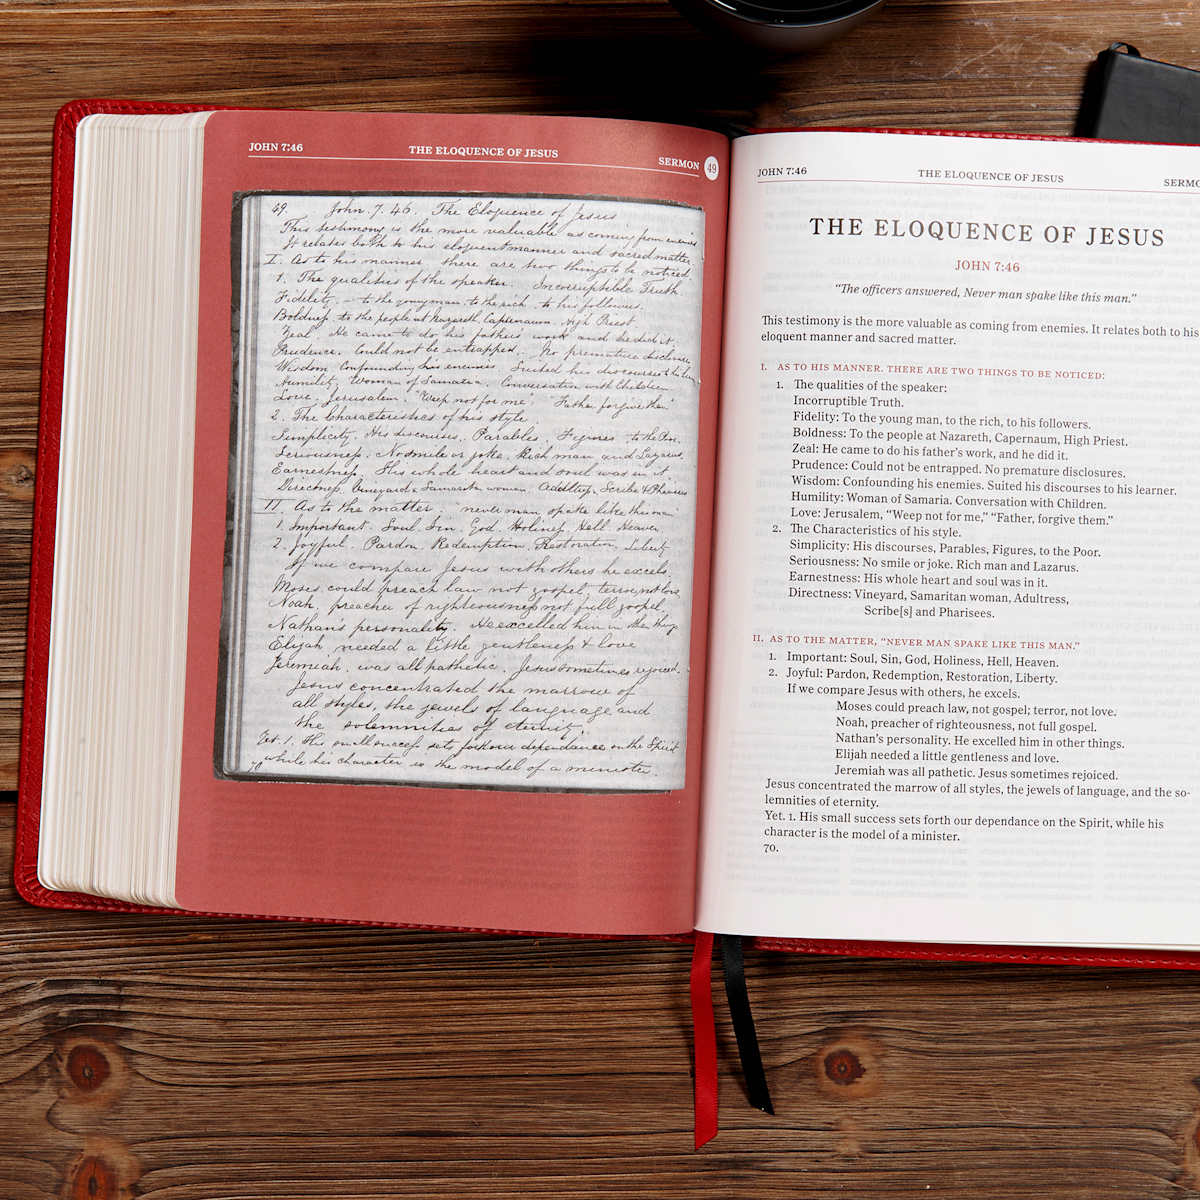 JOHN 7:46
THE ELOQUENCE OF JESUS
SERMON 49
49. John. 7. 46. The Eloquence of Jesus
This testimony is the more valuable as coming from enemies
It relates both to his eloquent manner and sacred matter.
I. As to his manner. there are two things to be noticed.
1. The qualities of the speaker. Incorruptible Truth.
Fidelity. – to the young man, to the rich, to his followers.
Boldness, to the people at Nazareth Capernaum. High Priest
Zeal. He came to do his father's work and he did it.
Prudence. Could not be entrapped. No premature disclosures
Wisdom. Confounding his enemies. Suited his discourses to
Humility. Woman of Samaria. Conversation with Children
Love. Jerusalem. "Weep not for me". "Father forgive them"
2. The Characteristics of his style.
Simplicity. His discourses, Parables, Figures, to the Poor.
Seriousness. No smile or joke. Rich man and Lazarus.
Earnestness. His whole heart and soul was in it
Directness. Vineyard, Samaritan woman, Scribe & Pharisees
II As to the matter. never man spake like this man
1. Important. Soul. Sin, God. Holiness, Hell. Heaven
2. Joyful. Pardon. Redemption. Restoration, Liberty
If we compare Jesus with others he excels.
Moses could preach law not gospel, terror, not love.
Noah, preacher of righteousness not full gospel,
Nathan's personality. He excelled him in other things
Elijah needed a little gentleness & love
Jeremiah, was all pathetic. Jesus sometimes rejoiced.
Jesus concentrated the marrow of
all styles, the jewels of language and
the solemnities of eternity.
Yet. 1. His small success sets forth our dependance on the Spirit
while his character is the model of a minister.
70
JOHN 7:46
THE ELOQUENCE OF JESUS
SERMO
THE ELOQUENCE OF JESUS
JOHN 7:46
“The officers answered, Never man spake like this man.”
This testimony is the more valuable as coming from enemies. It relates both to his
eloquent manner and sacred matter.
I. AS TO HIS MANNER. THERE ARE TWO THINGS TO BE NOTICED:
1. The qualities of the speaker:
Incorruptible Truth.
Fidelity: To the young man, to the rich, to his followers.
Boldness: To the people at Nazareth, Capernaum, High Priest.
Zeal: He came to do his father’s work, and he did it.
Prudence: Could not be entrapped. No premature disclosures.
Wisdom: Confounding his enemies. Suited his discourses to his learner.
Humility: Woman of Samaria. Conversation with Children.
Love: Jerusalem, “Weep not for me,” “Father, forgive them.”
2. The Characteristics of his style.
Simplicity: His discourses, Parables, Figures, to the Poor.
Seriousness: No smile or joke. Rich man and Lazarus.
Earnestness: His whole heart and soul was in it.
Directness: Vineyard, Samaritan woman, Adultress,
Scribe[s] and Pharisees.
II. AS TO THE MATTER, “NEVER MAN SPAKE LIKE THIS MAN.”
1. Important: Soul, Sin, God, Holiness, Hell, Heaven.
2. Joyful: Pardon, Redemption, Restoration, Liberty.
If we compare Jesus with others, he excels.
Moses could preach law, not gospel; terror, not love.
Noah, preacher of righteousness, not full gospel.
Nathan’s personality. He excelled him in other things.
Elijah needed a little gentleness and love.
Jeremiah was all pathetic. Jesus sometimes rejoiced.
Jesus concentrated the marrow of all styles, the jewels of language, and the so-
lemnities of eternity.
Yet. 1. His small success sets forth our dependance on the Spirit, while his
character is the model of a minister.
70.